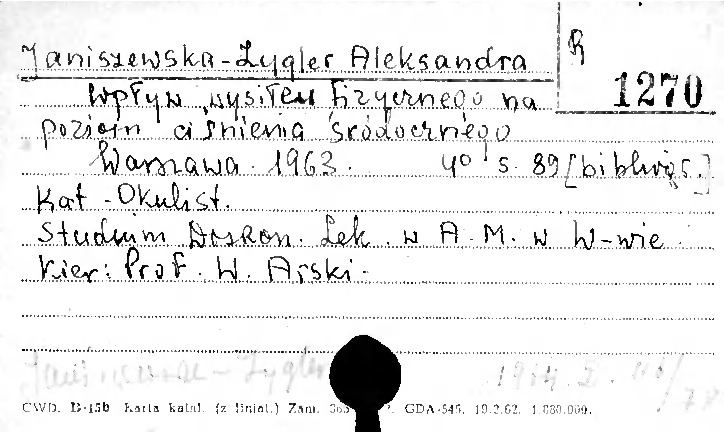 Janiszewska-Zygler Aleksandra
R
1270
Wpływ wysiłku fizycznego na
poziom ciśnienia śródocznego
Warszawa. 1963. 4° s. 89 [bibliogr.]
Kat. Okulist.
Studium Doskon. Lek. w A. M. w W-wie.
Kier: Prof. W. Arski.
Janiszewska-Zygler 1964. I.
CWD. D-15b Karta katal. (z liniat.) Zam. GDA-545. 19.2.62. 1.000.000.